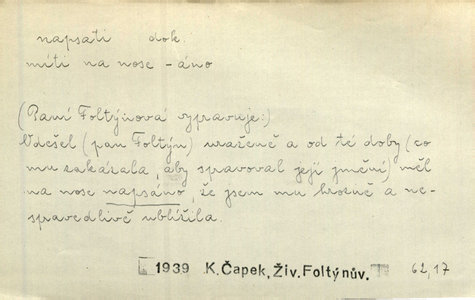 napsati dok.
míti na nose - áno
(Paní Foltýnová vypravuje:)
Odešel (pan Foltýn) uraženě a od té doby (co
mu zakázala, aby spravoval její jmění) měl
na nose napsáno, že jsem mu hrozně a ne-
spravedlivě ublížila.
1939 K. Čapek, Živ. Foltýnův. 62,17